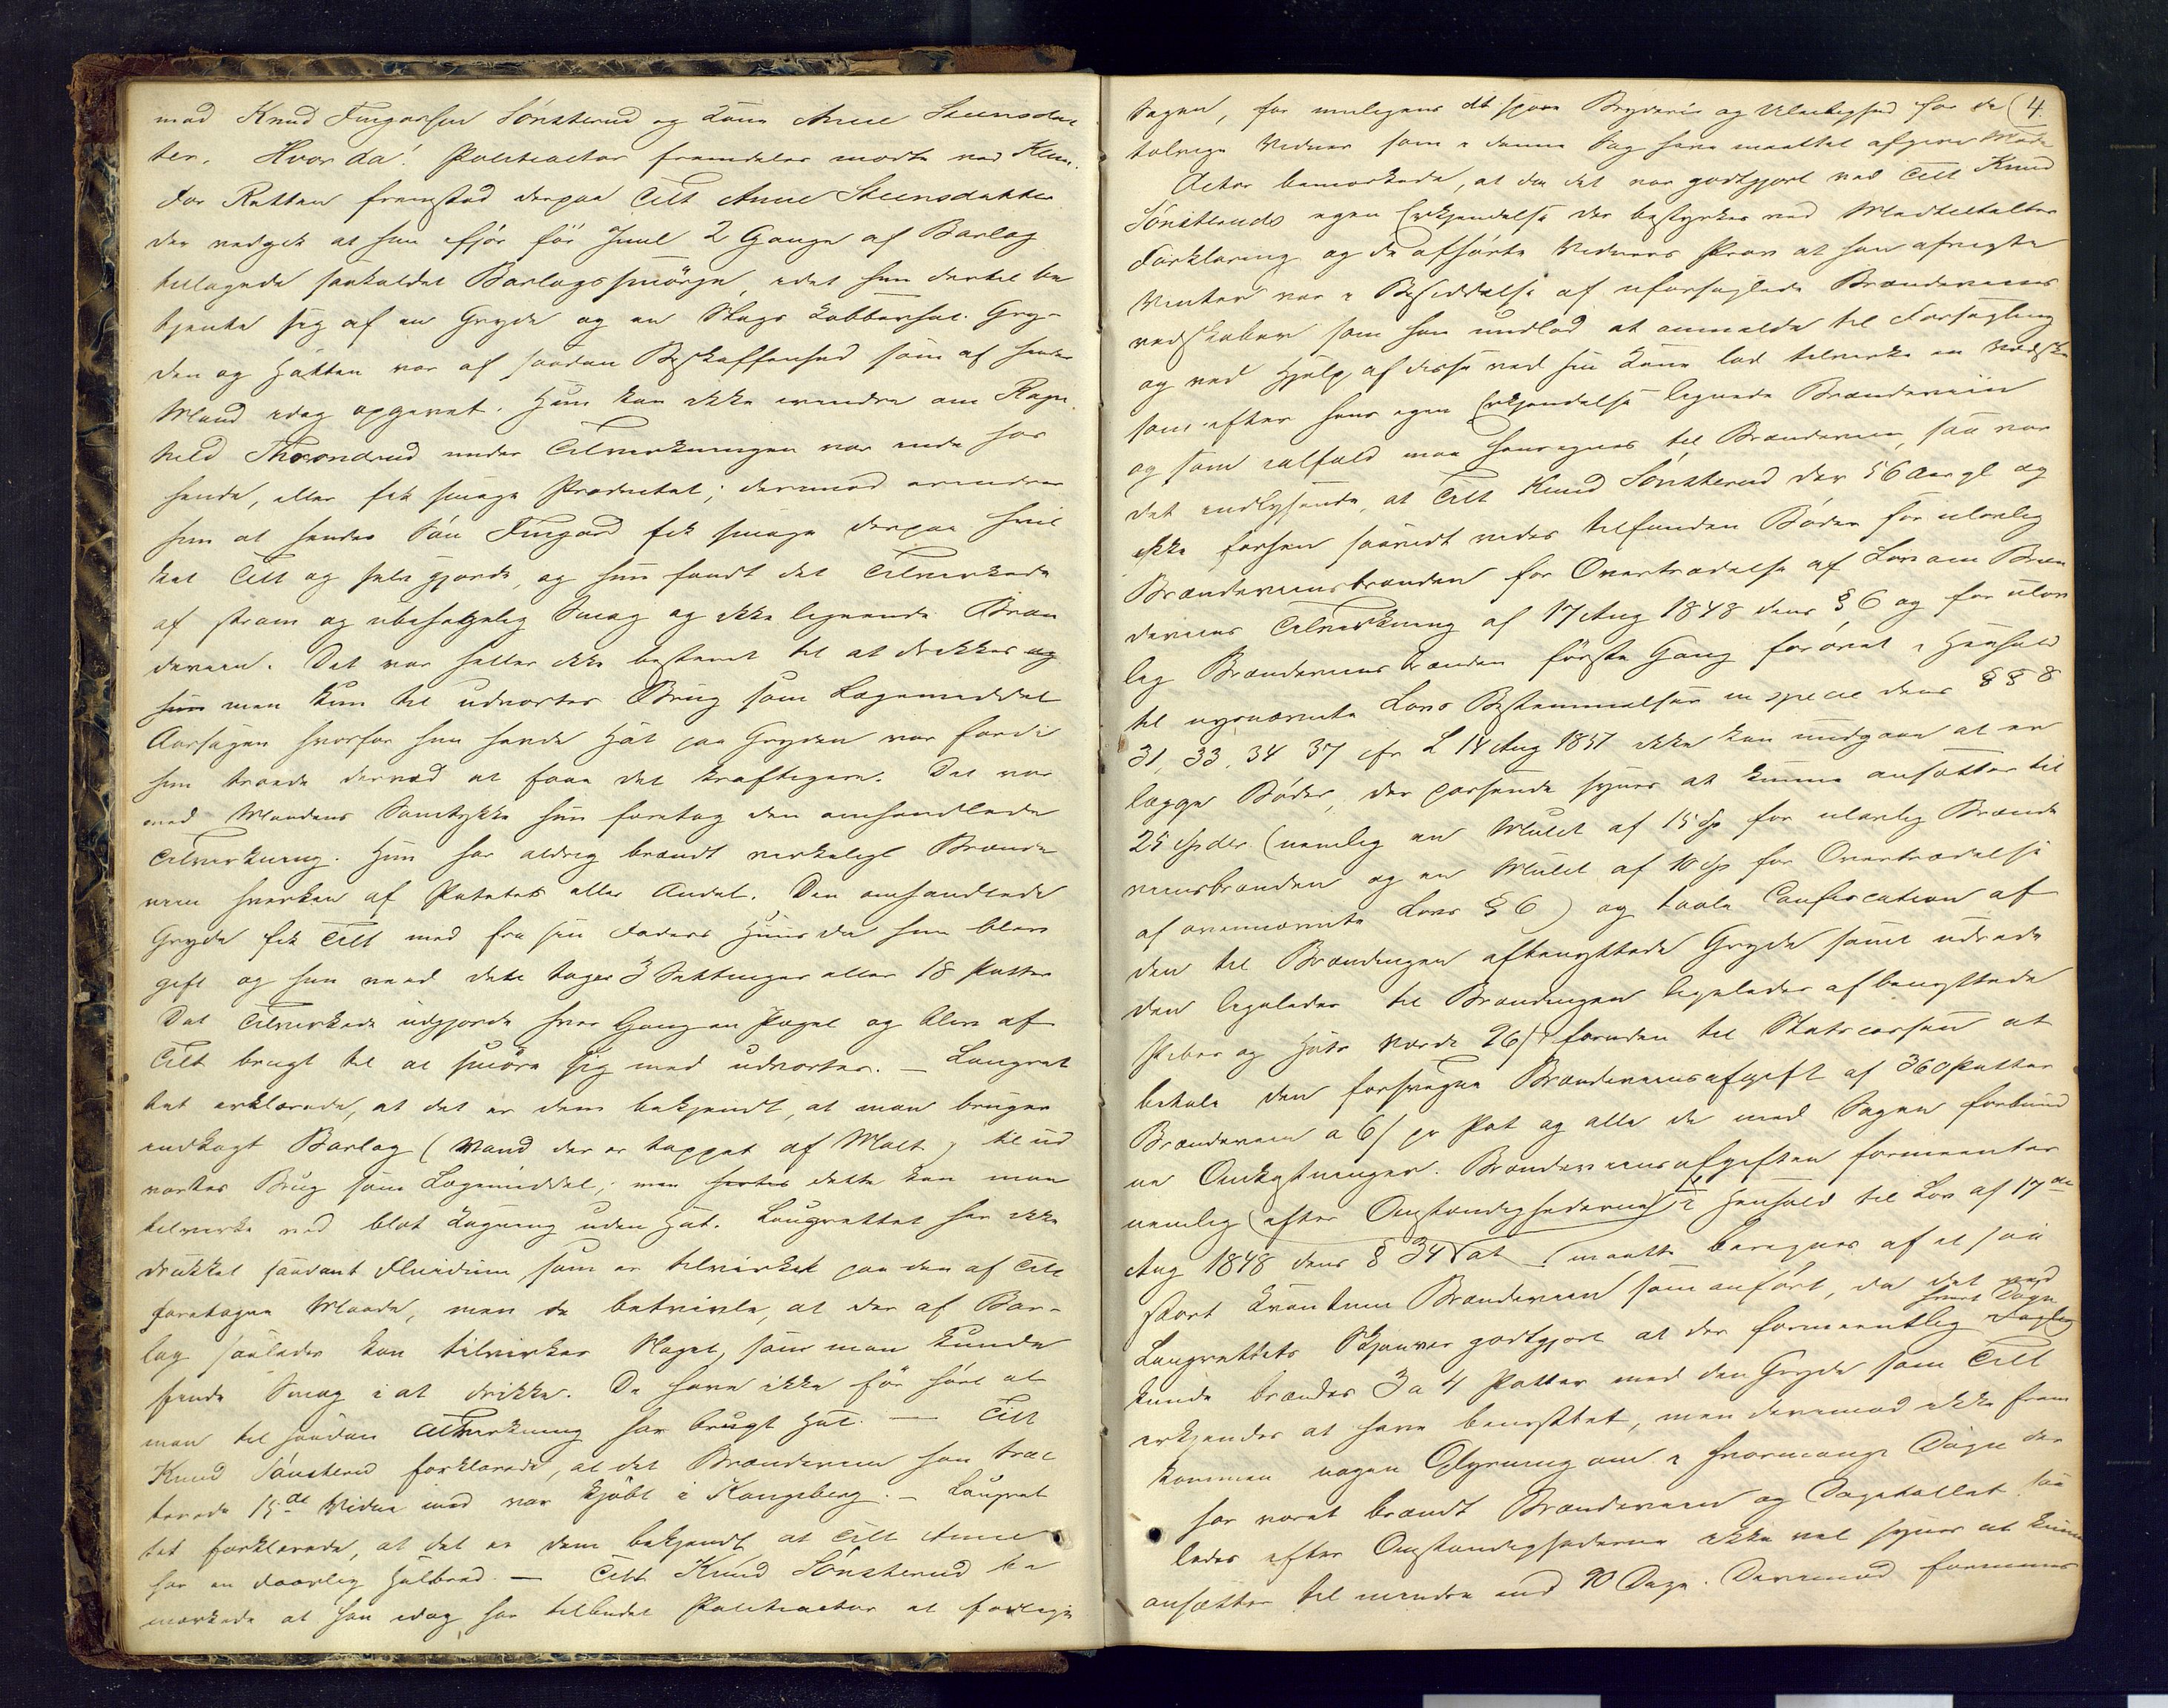 mod Knud Fingarsen Sönsterud og Kone Anne Steensdat
ter. Hvor da! Politiactor fremdeles mødte ved Klem.
For Retten fremstod derpaa Tilt Anne Steensdatter
der vedgik at hun ifjör för Juul 2 Gange af Barlog
tillagede saakaldet Barlogssmörge, idet hun dertil be
tjente sig af en Gryde og en Slags Kobberhat. Gry-
den og Hatten var af saadan Beskaffenhed som af hendes
Mand idag opgivet. Hun kan ikke erindre om Ragn
hild Thorandrud under Tilvirkningen var inde hos
hende, eller fik smage Productet; derimod erindrer
hun at hendes Sön Fingard fik smage derpaa hvil
ket Tilt og selv gjorde, og hun fandt det Tilvirkede
af stram og ubehagelig Smag og ikke lignende Bræn
deviin. Det var heller ikke bestemt til at drikkes og
hun men kun til udvortes Brug som Lægemiddel
Aarsagen hvorfor hun havde Hat paa Gryden var fordi
hun troede derved at faae det kraftigere. Det var
med Mandens Samtykke hun foretog den omhandlede
Tilvirkning. Hun har aldrig brændt virkeligt Brænde
viin hverken af Poteter eller Andet. Den omhandlede
Gryde fik Tilt med fra sin Faders Huus da hun blev
gift og hun veed dette tager 3 Settinger eller 18 Potter
Det Tilvirkede udgjorde hver Gang en Pægel og blev af
Tilt brugt til at smöre sig med udvortes. — Laugret
tet erklærede, at det er dem bekjendt, at man bruger
indkogt Barlog (Vand der er tappet af Malt) til ud
vortes Brug som Lægemiddel; men dette kan man
tilvirke ved blot Kogning uden Hat. Laugrettet har ikke
drukket saadant Fluidum som er tilvirket paa den af Tilt
foretagne Maade, men de betvivle, at der af Bar-
log saaledes kan tilvirkes Noget, som man kunde
finde Smag i at drikke. De have ikke för hört at
man til saadan Tilvirkning har brugt Hat. — Tilt
Knud Sönsterud forklarede, at det Brændeviin han trac
terede 15de Vidne med var kjöbt i Kongsberg. — Laugret
tet forklarede, at det er dem bekjendt at Tilt Anne
har en daarlig Helbred. — Tilt Knud Sönsterud be
mærkede at han idag har tilbudet Politiactor at forlige
Sagen, for muligens at spare Bryderie og Uleilighed for de (4.
talrige Vidner som i denne Sag have maattet afgive Møde
Actor bemærkede, at da det var godtgjort ved Tilt Knud
Sönsteruds egen Erkjendelse der bestyrkes ved Medtiltaltes
Forklaring og de afhörte Vidners Prov at han afvigte
Vinter var i Besiddelse af uforseglede Brændeviins
redskaber som han undlod at anmelde til Forsegling
og ved Hjelp af disse ved sin Kone lod tilvirke en Vædske
som efter hans egen Erkjendelse lignede Brændeviin
og som ialfald maa henregnes til Brændeviin, saa var
det indlysende, at Tilt Knud Sönsterud der 56 Aar gl og
ikke forhen saavidt vides tilfunden Böder for ulovlig
Brændeviinsbrænden for Overtrædelse af Lov om Bræn
deviins Tilvirkning af 17 Aug 1848 dens § 6 og for ulov
lig Brændeviinsbrænden förste Gang forövet i Henhold
til nysnævnte Lovs Bestemmelser in specie dens §§ 8
31, 33, 34 37 cfr L 14 Aug 1851 ikke kan undgaae at er
lægge Böder, der passende synes at kunne ansættes til
25 Spdlr (nemlig en Mulct af 15 Sp for ulovlig Brænde
viinsbrænden og en Mulct af 10 Sp for Overtrædelse
af ovennævnte Lovs § 6) og taale Confiscation af
den til Brændingen aftenyttede Gryde samt udrede
den ligeledes til Brændingen ligeledes afbenyttede
Piber og Hats Værdi 26 s foruden til Statscassen at
betale den forsvegne Brændeviinsafgift af 360 Potter
Brændeviin a 6 s pr Pot og alle de med Sagen forbund
ne Omkostninger. Brændeviinsafgiften formeentes
nemlig (efter Omstændighederne) i Henhold til Lov af 17de
Aug 1848 dens § 34 at maatte beregnes af et saa
stort Kvantum Brændeviin som anfört, da det ved
Laugrettets Skjön var godtgjort at der formeentlig hvert Dögn
kunde brændes 3 a 4 Potter med den Gryde som Tilt
erkjendes at have benyttet, men derimod ikke frem
kommen nogen Oplysning om i hvormange Dögn der
har været brændt Brændeviin og Dagetallet saa
ledes efter Omstændighederne ikke vel synes at kunne
ansættes til mindre end 90 Dage. Derimod formenes